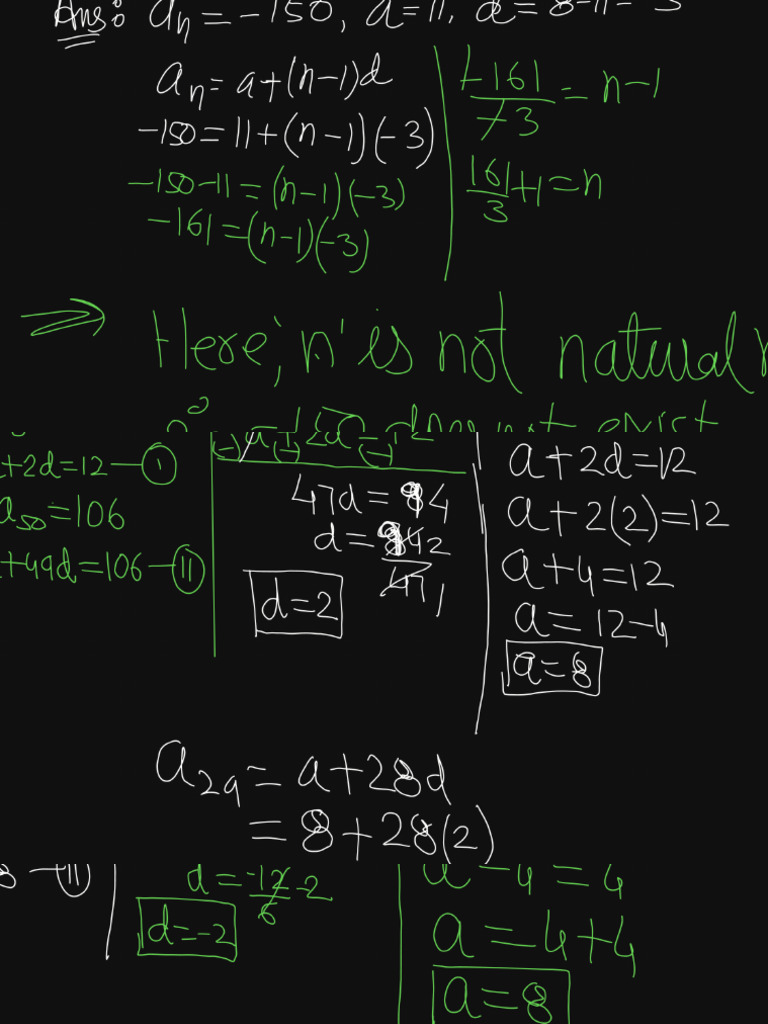 Ans: an = -150, a = 11, d = 8-11 = -3
an = a+(n-1)d
-150 = 11+(n-1)(-3)
-150-11 = (n-1)(-3)
-161 = (n-1)(-3)
-161/-3 = n-1
161/3 +1 = n
⇒ Here, 'n' is not natural
+2d=12 — (I)
a50 = 106
+49d=106 — (II)
47d = 94
d = 94 2 / 47 1
d=2
a+2d=12
a+2(2)=12
a+4=12
a = 12-4
a=8
a29 = a+28d
= 8+28(2)
(II)
d = -12/6 -2
d=-2
-4 = 4
a = 4+4
a=8